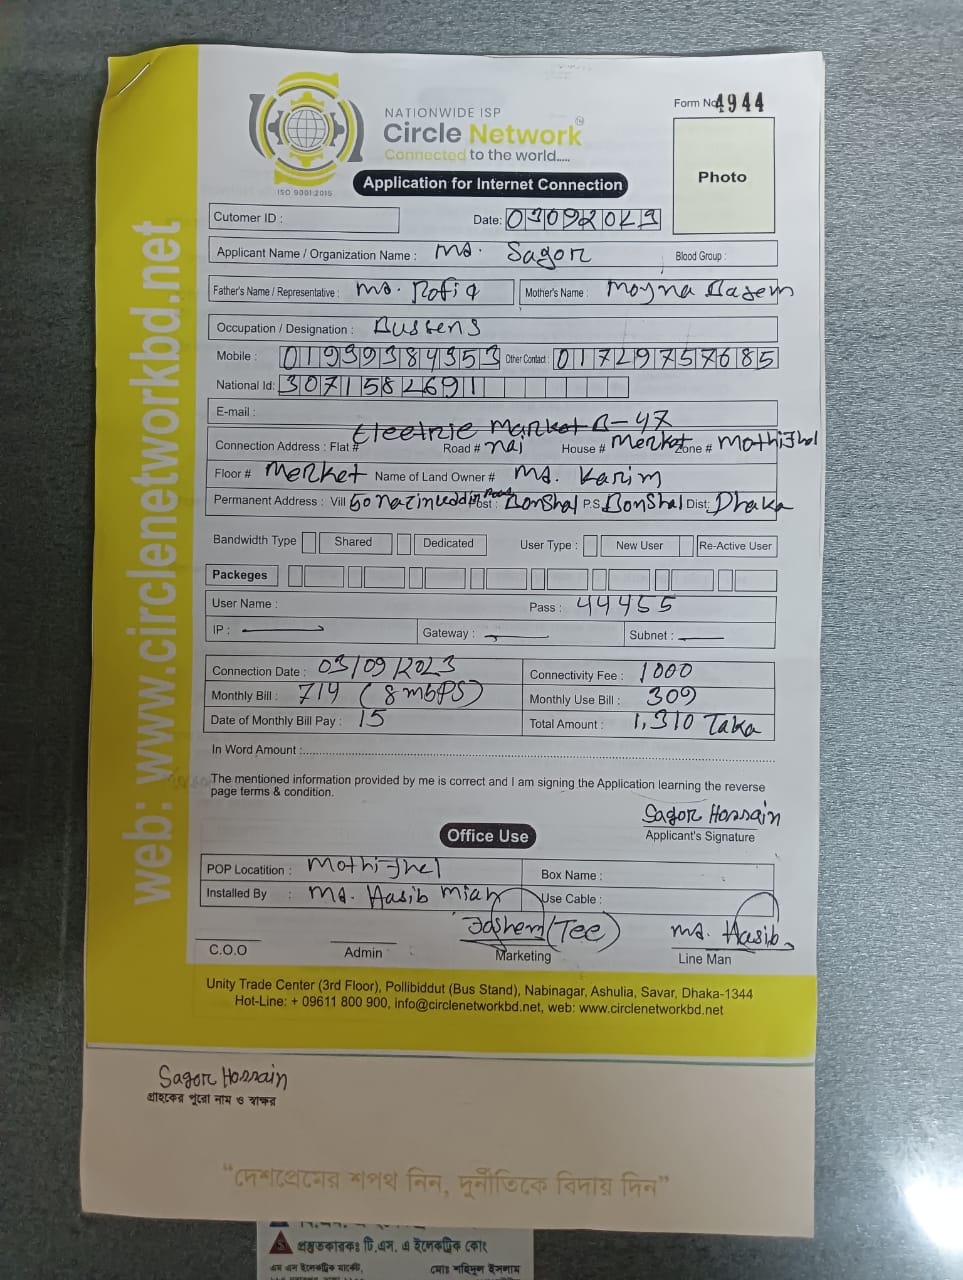 NATIONWIDE ISP
Circle Network
Connected to the world.....
ISO 9001:2015
Form No 4944
Photo
Application for Internet Connection
web: www.circlenetworkbd.net
Cutomer ID :
Date: 03092023
Applicant Name / Organization Name : MD. Sagor Blood Group :
Father's Name / Representative : MD. Rofiq Mother's Name : Moyna Bagem
Occupation / Designation : Bussens
Mobile : 01939384353 Other Contact : 01729757685
National Id: 3071582691
E-mail :
Connection Address : Flat # Electric Market B-47 Road # Naj House # Merket Zone # Mothijhol
Floor # Merket Name of Land Owner # MD. Karim
Permanent Address : Vill 50 Nazimuddin Road Post : Bonshal P.S Bonshal Dist: Dhaka
Bandwidth Type Shared Dedicated User Type : New User Re-Active User
Packeges
User Name : Pass : 44455
IP : Gateway : Subnet :
Connection Date : 03/09/2023 Connectivity Fee : 1000
Monthly Bill : 714 (8 mbps) Monthly Use Bill : 309
Date of Monthly Bill Pay : 15 Total Amount : 1,310 Taka
In Word Amount :
The mentioned information provided by me is correct and I am signing the Application learning the reverse
page terms & condition.
Sagor Hossain
Applicant's Signature
Office Use
POP Locatition : Mothijhel Box Name :
Installed By : MD. Hasib Miah Use Cable :
(Tee) MD. Hasib
C.O.O Admin Marketing Line Man
Unity Trade Center (3rd Floor), Pollibiddut (Bus Stand), Nabinagar, Ashulia, Savar, Dhaka-1344
Hot-Line: + 09611 800 900, info@circlenetworkbd.net, web: www.circlenetworkbd.net
Sagor Hossain
গ্রাহকের পুরো নাম ও স্বাক্ষর
“দেশপ্রেমের শপথ নিন, দুর্নীতিকে বিদায় দিন”
প্রস্তুতকারকঃ টি.এস. এ ইলেকট্রিক কোং
এম এস ইলেকট্রিক মার্কেট, মোঃ শহিদুল ইসলাম